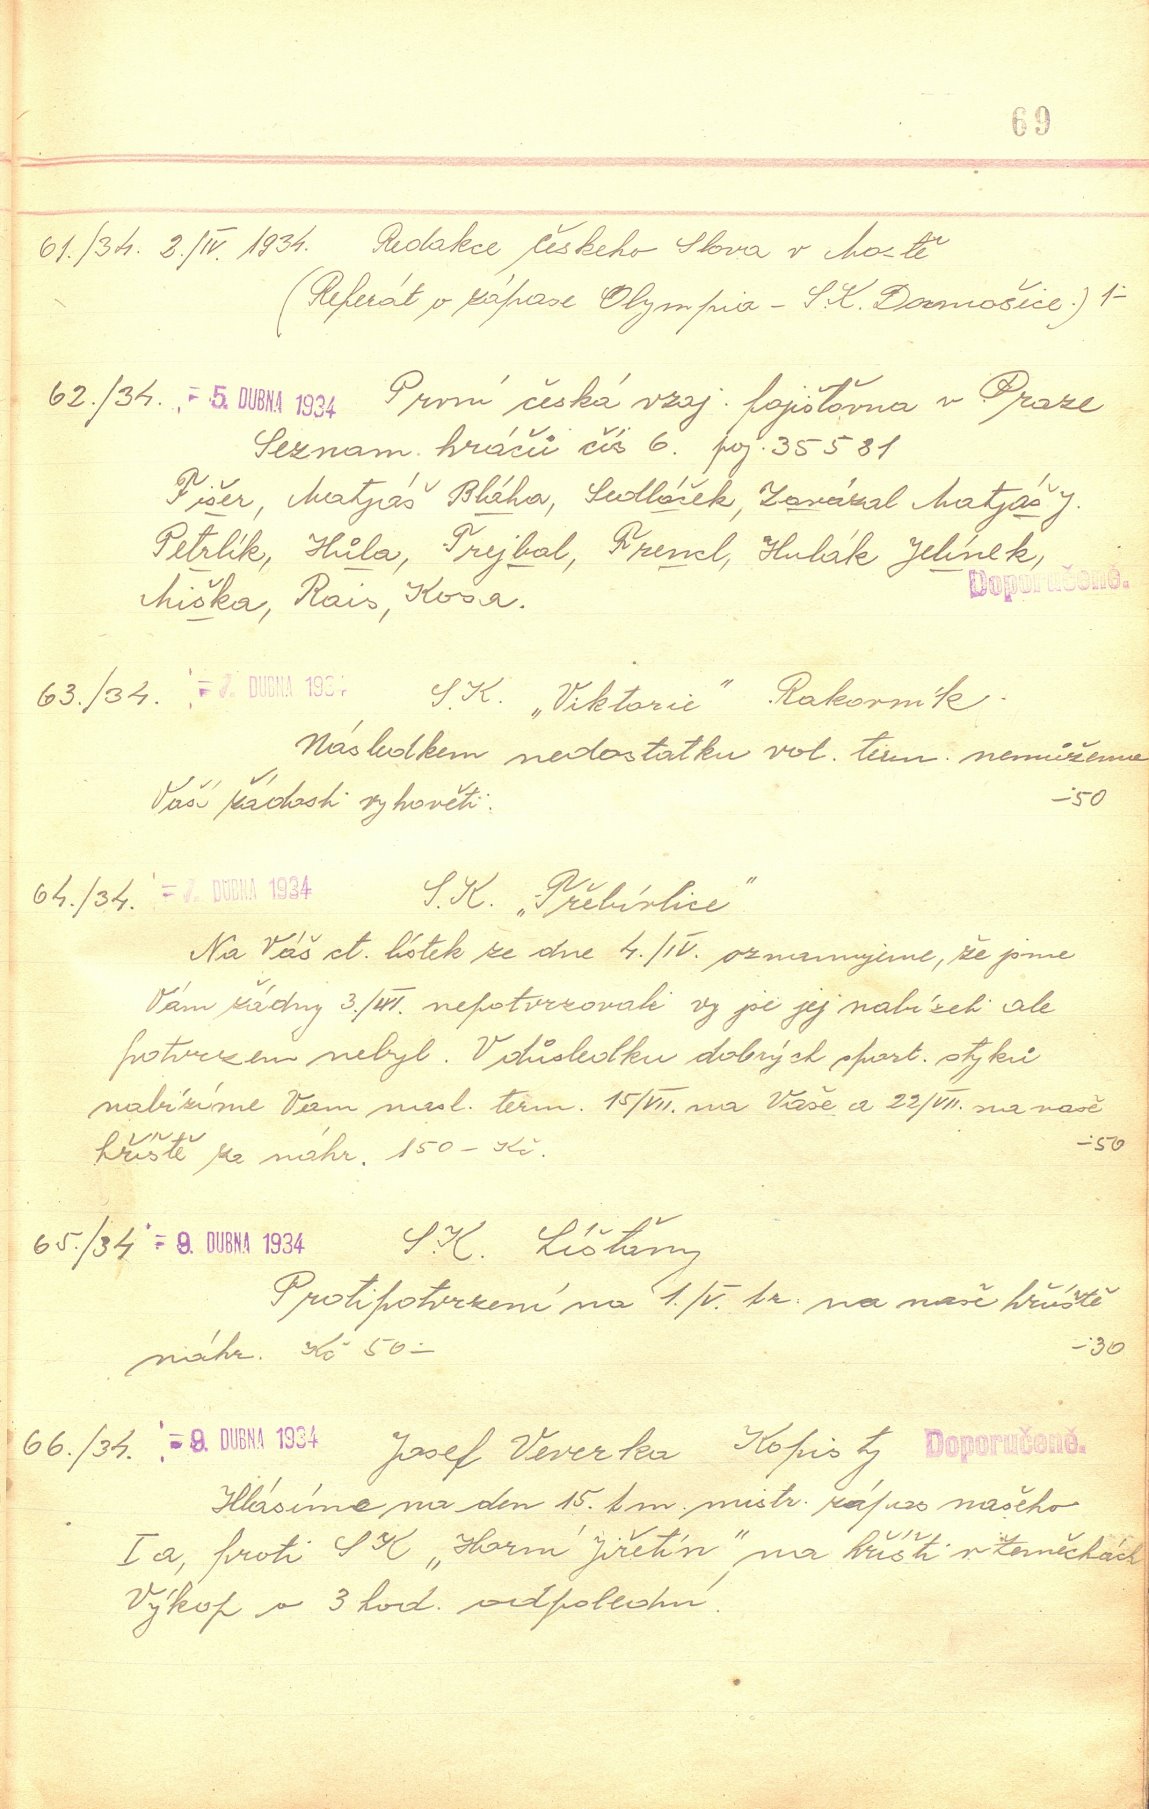 69
61./34. 2./IV. 1934. Redakce českeho Slova v Mostě
(Referát o zápase Olympia – S.K. Domošice.) 1–
62./34. – 5. DUBNA 1934 První česká vzaj. pojišťovna v Praze
Seznam hráčů čís 6. poj. 35581
Fišer, Matjáš Bláha, Sedláček, Zavázal Matjáš J.
Petrlík, Hůla, Trejbal, Frencl, Hulák Jelínek,
Doporučeně.
Miška, Rais, Kosa.
63./34. – 7. DUBNA 1934 S.K. „Viktorie" Rakovník
Následkem nedostatku vol. term. nemůžeme
Vaší žádosti vyhověti. –50
64./34. – 7. DUBNA 1934 S.K. „Třebívlice"
Na Váš ct. lístek ze dne 4./IV. oznamujeme, že jsme
Vám žádny 3./VI. nepotvrzovali vy jsi jej nabízeli ale
potvrzem nebyl. V důsledku dobrých sport. styků
nabízíme Vam nasl. term. 15/VII. na Vaše a 22/VII. na vaše
hřiště za náhr. 150– Kč. –50
65./34 – 9. DUBNA 1934 S.K. Líšťany
Protipotvrzení na 1./V. t.r. na naše hřiště
náhr. Kč 50– –30
66./34. – 9. DUBNA 1934 Josef Veverka Kopisty Doporučeně.
Hlásíme na den 15. t m. mistr. zápas našeho
I a, proti S K „Horní Jiřetín" na hřišti v
Výkop v 3 hod. odpoledni.